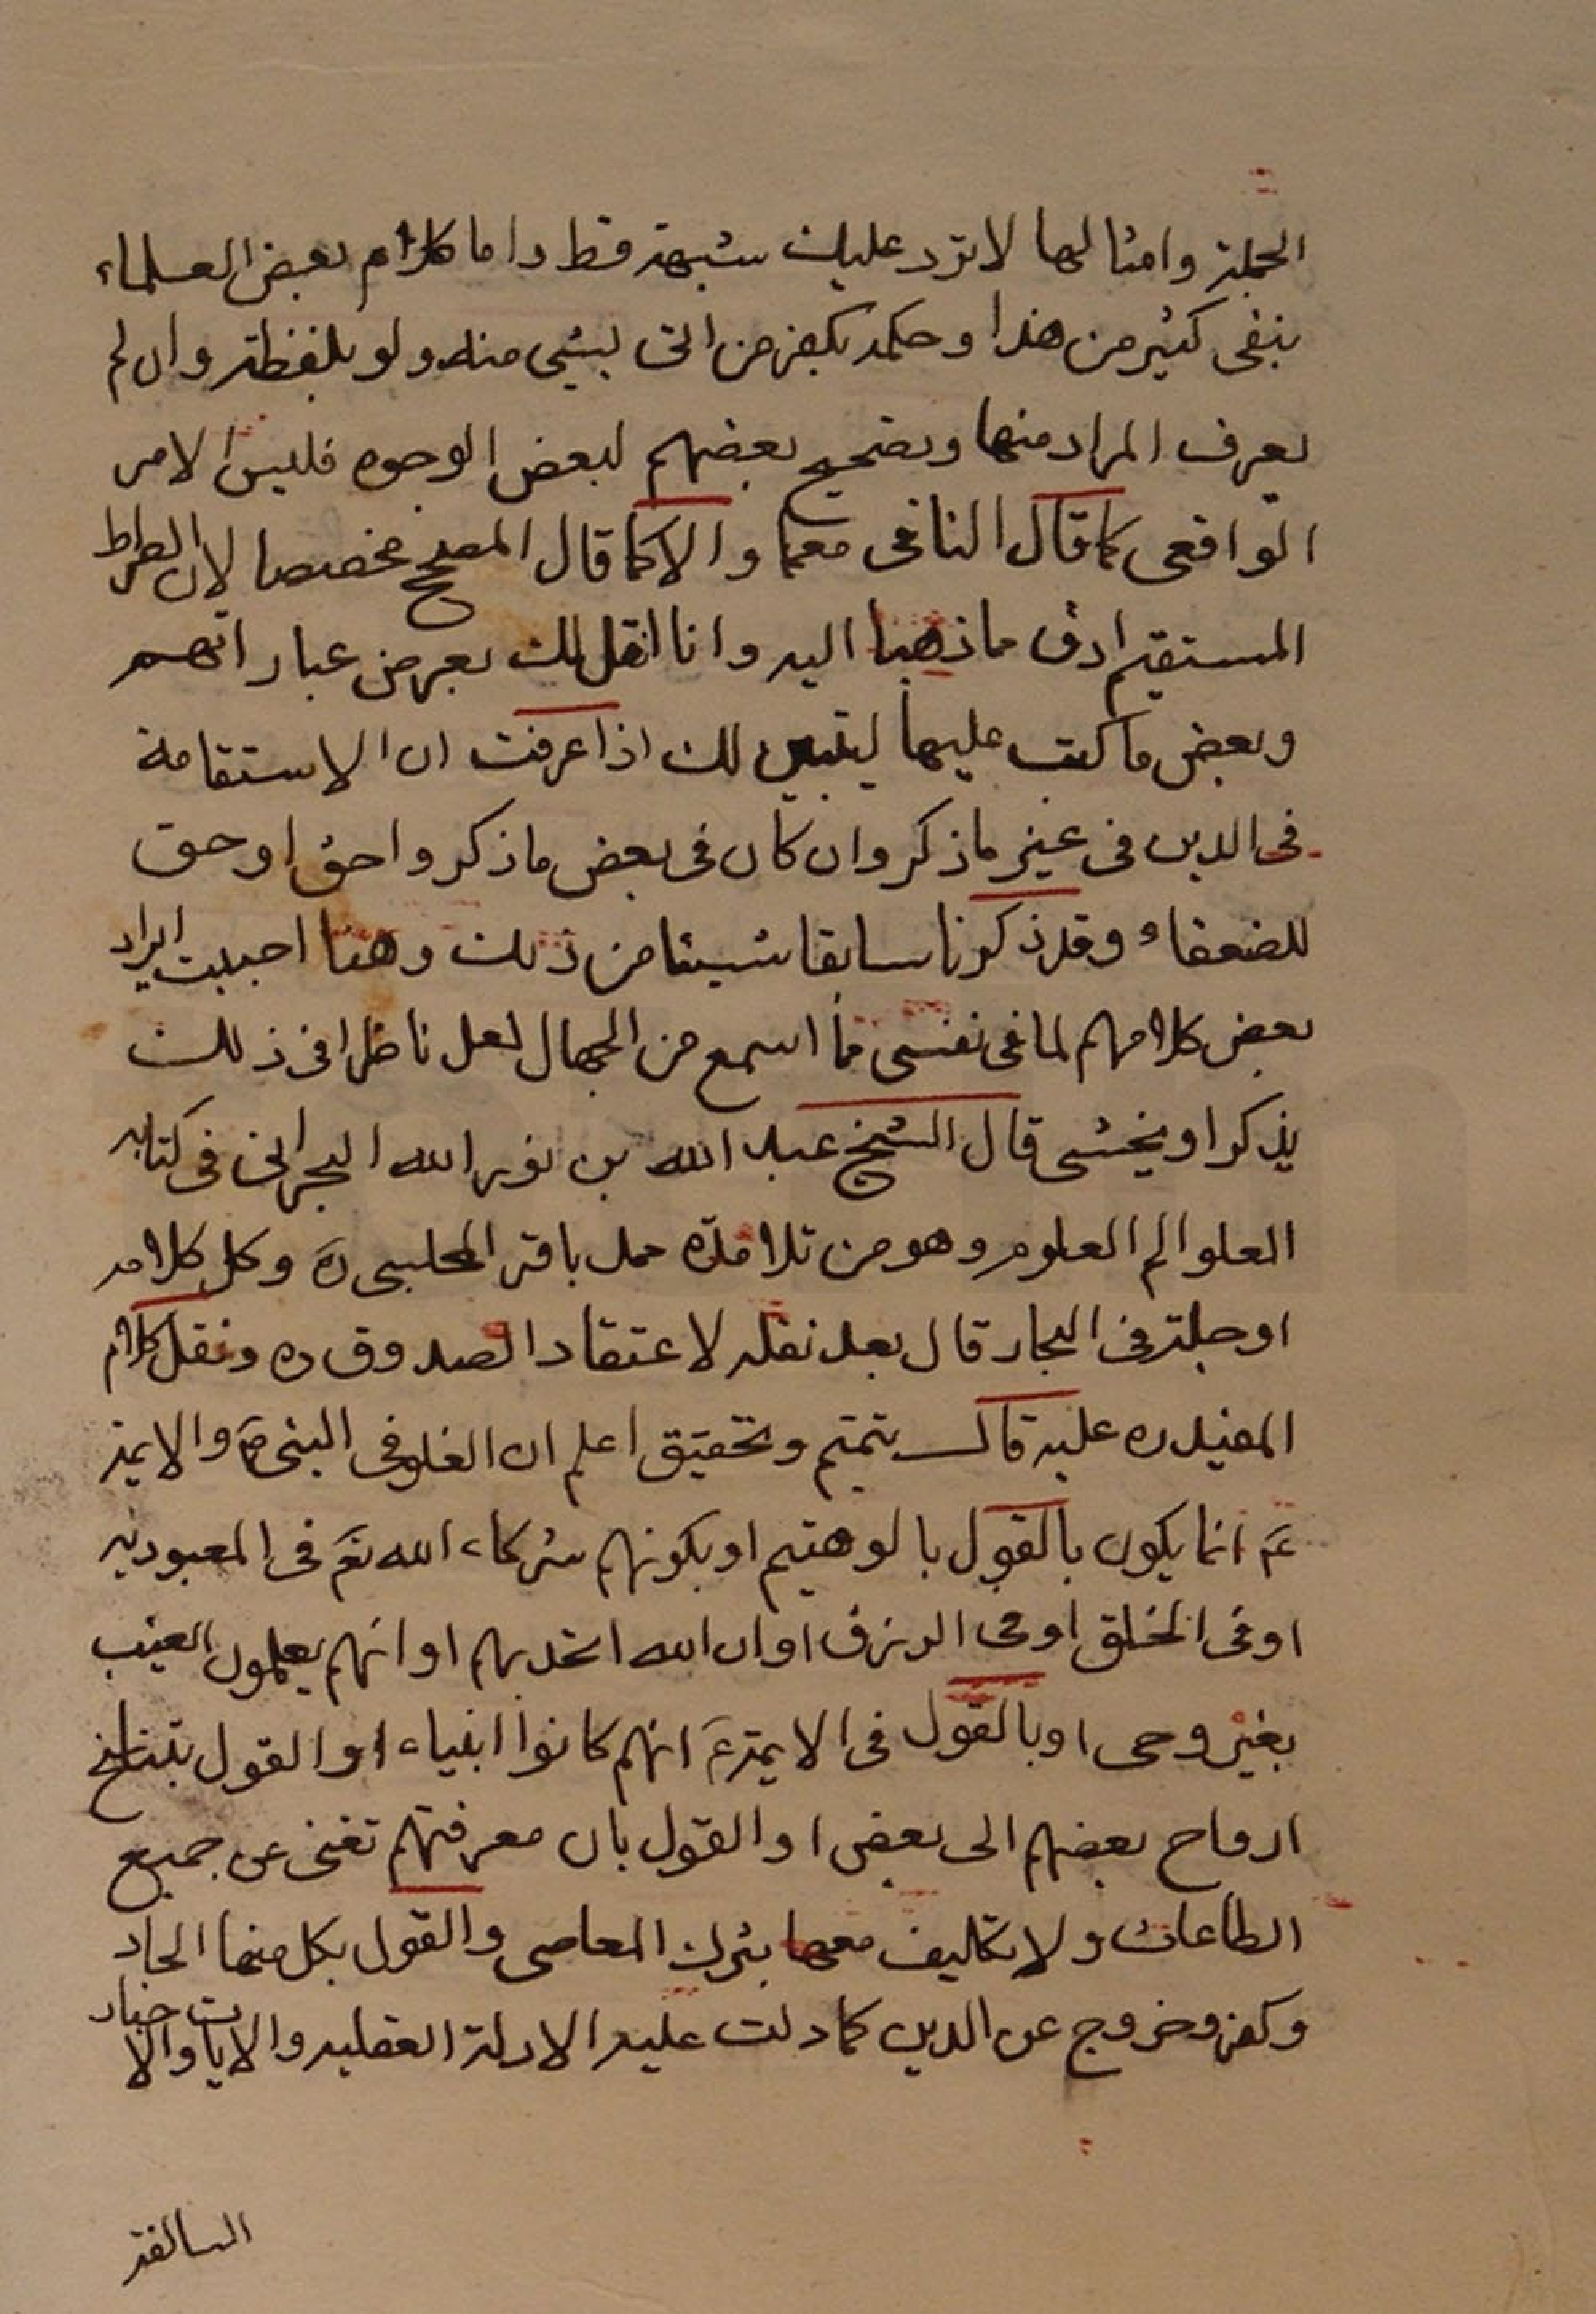 الجملة وامثالها لا ترد عليك شبهة قط واما كلام بعض العلماء
بنفى كثير من هذا وحكمه بكفر من اتى بشيى منه ولو بلفظة وان لم
يعرف المراد منها وتصحيح بعضهم لبعض الوجوه فليس الامر
الواقعى كما قال النافى معمما والا كما قال المصحح مخصصا لان الصراط
المستقيم ادق ما ذهبا اليه وانا انقل لك بعض عباراتهم
وبعض ما كتب عليها ليتبين لك اذا عرفت ان الاستقامة
فى الدين فى غير ما ذكر وان كان فى بعض ما ذكروا حق او حق
للضعفاء وقد ذكرنا سابقا شيئا من ذلك وهنا احببت ايراد
بعض كلامهم لما فى نفسى مما اسمع من الجهال لعل ناظرا فى ذلك
يذكر او يخشى قال الشيخ عبد الله بن نور الله البحرانى فى كتابه
العلوالم العلوم وهو من تلامذة محمد باقر المجلسى ره وكل كلامه
او جلة فى البحار قال بعد نقله لاعتقاد الصدوق ره ونقل كلام
المفيد ره عليه قال تتميم وتحقيق اعلم ان الغلو فى النبى ص والائمة
ع انما يكون بالقول بالوهيتهم او بكونهم شركاء الله تع فى المعبودية
او فى الخلق او فى الرزق او ان الله اتحد بهم او انهم يعلمون الغيب
بغير وحى او بالقول فى الائمة ع انهم كانوا انبياء او القول بتناسخ
ارواح بعضهم الى بعض او القول بان معرفتهم تغنى عن جميع
الطاعات ولا تكليف معها بترك المعاصى والقول بكل منها الحاد
وكفر وخروج عن الدين كما دلت عليه الادلة العقلية والايات والاخبار
السالفة